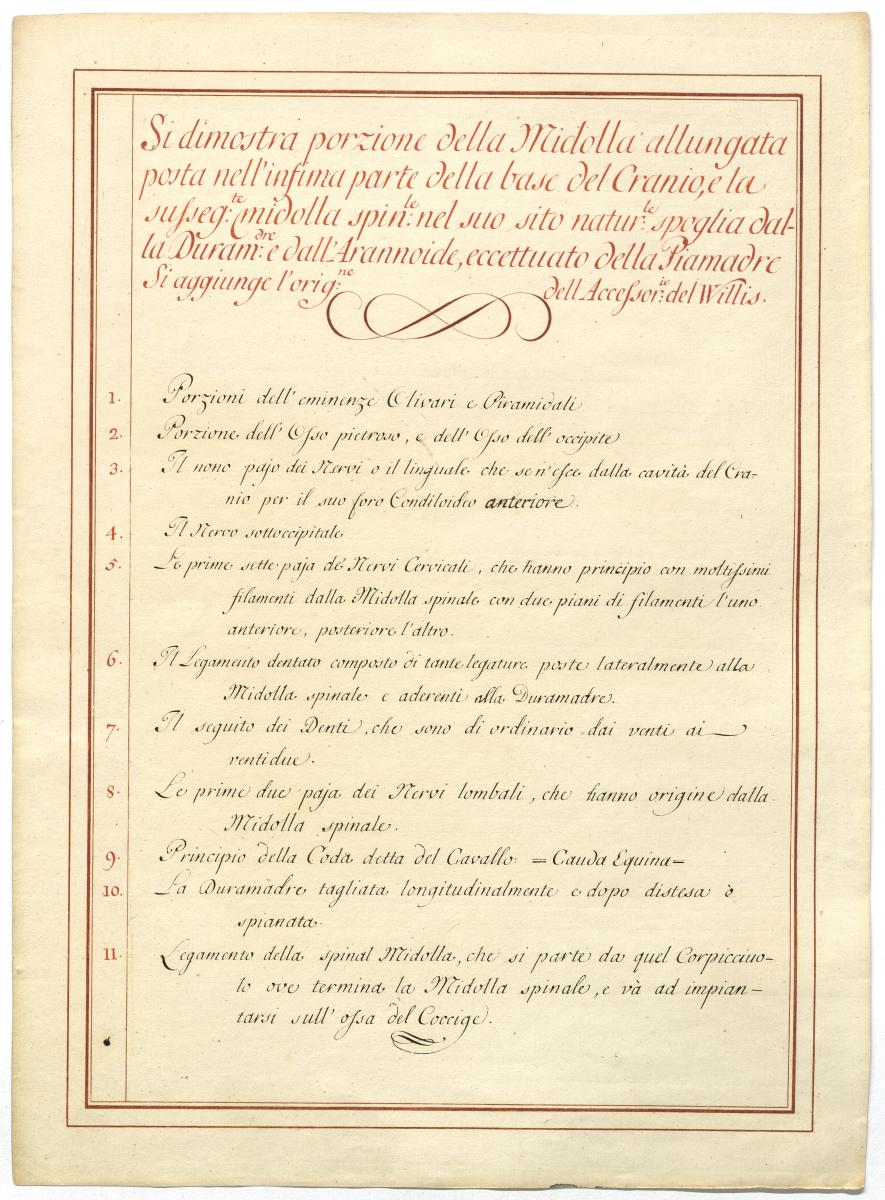 Si dimostra porzione della Midolla allungata
posta nell'infima parte della base del Cranio, e la
susseg:te midolla spin:le nel suo sito natur:le spoglia dal-
la Duram:dre e dall'Arannoide, eccettuato della Piamadre
Si aggiunge l'orig:ne dell Accessor:io del Willis.
1. Porzioni dell'eminenze Olivari e Piramidali
2. Porzione dell'Osso pietroso, e dell'Osso dell'occipite
3. Il nono pajo dei Nervi o il linguale che se n'esce dalla cavità del Cra-
nio per il suo foro Condiloideo anteriore.
4. Il Nervo sottoccipitale
5. Le prime sette paja de Nervi Cervicali, che hanno principio con moltissimi
filamenti dalla Midolla spinale con due piani di filamenti l'uno
anteriore, posteriore l'altro.
6. Il Legamento dentato composto di tante legature poste lateralmente alla
Midolla spinale e aderenti alla Duramadre.
7. Il seguito dei Denti, che sono di ordinario dai venti ai
ventidue.
8. Le prime due paja dei Nervi lombali, che hanno origine dalla
Midolla spinale.
9. Principio della Coda detta del Cavallo: =Cauda Equina=
10. La Duramadre tagliata longitudinalmente e dopo distesa o
spianata.
11. Legamento della spinal Midolla, che si parte da quel Corpicciuo-
lo ove termina la Midolla spinale, e và ad impian-
tarsi sull'ossa del Coccige.